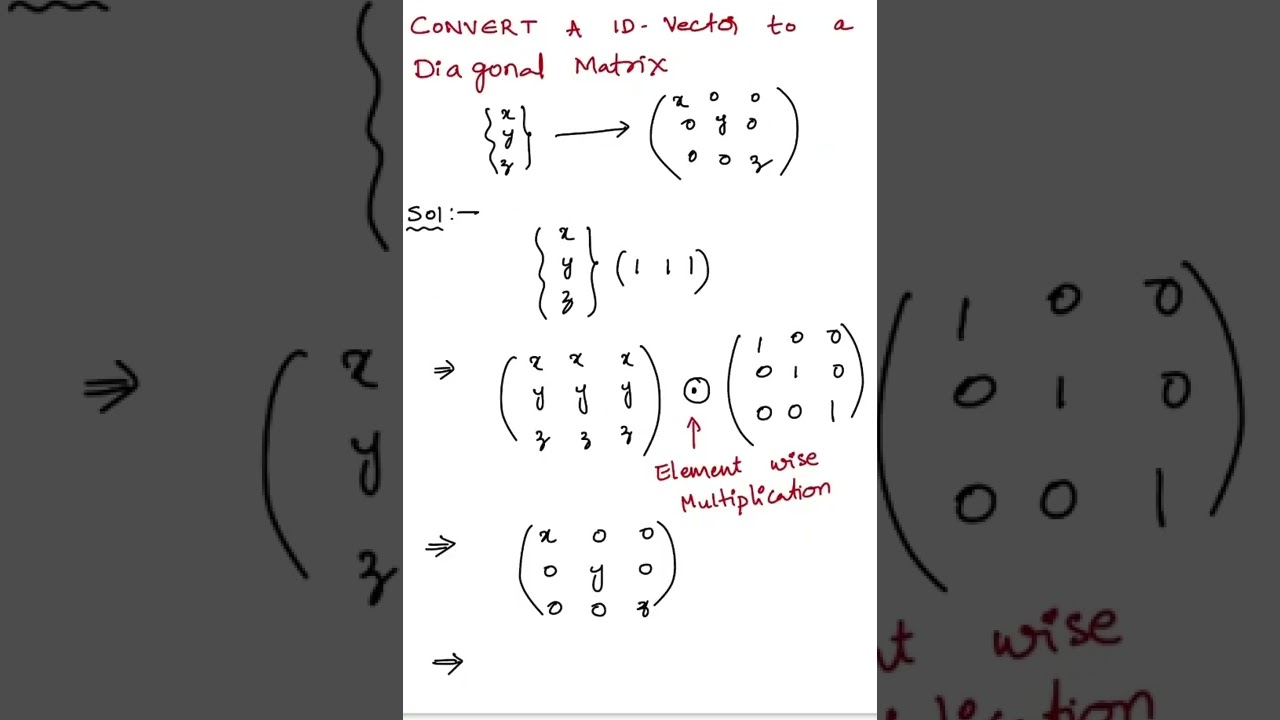 CONVERT A 1D-Vector to a
Diagonal Matrix
{x y z} → (x 0 0
0 y 0
0 0 z)
Sol :-
{x y z} (1 1 1)
⇒ (x x x
y y y
z z z) ⊙ (1 0 0
0 1 0
0 0 1)
↑
Element wise
Multiplication
⇒ (x 0 0
0 y 0
0 0 z)
⇒